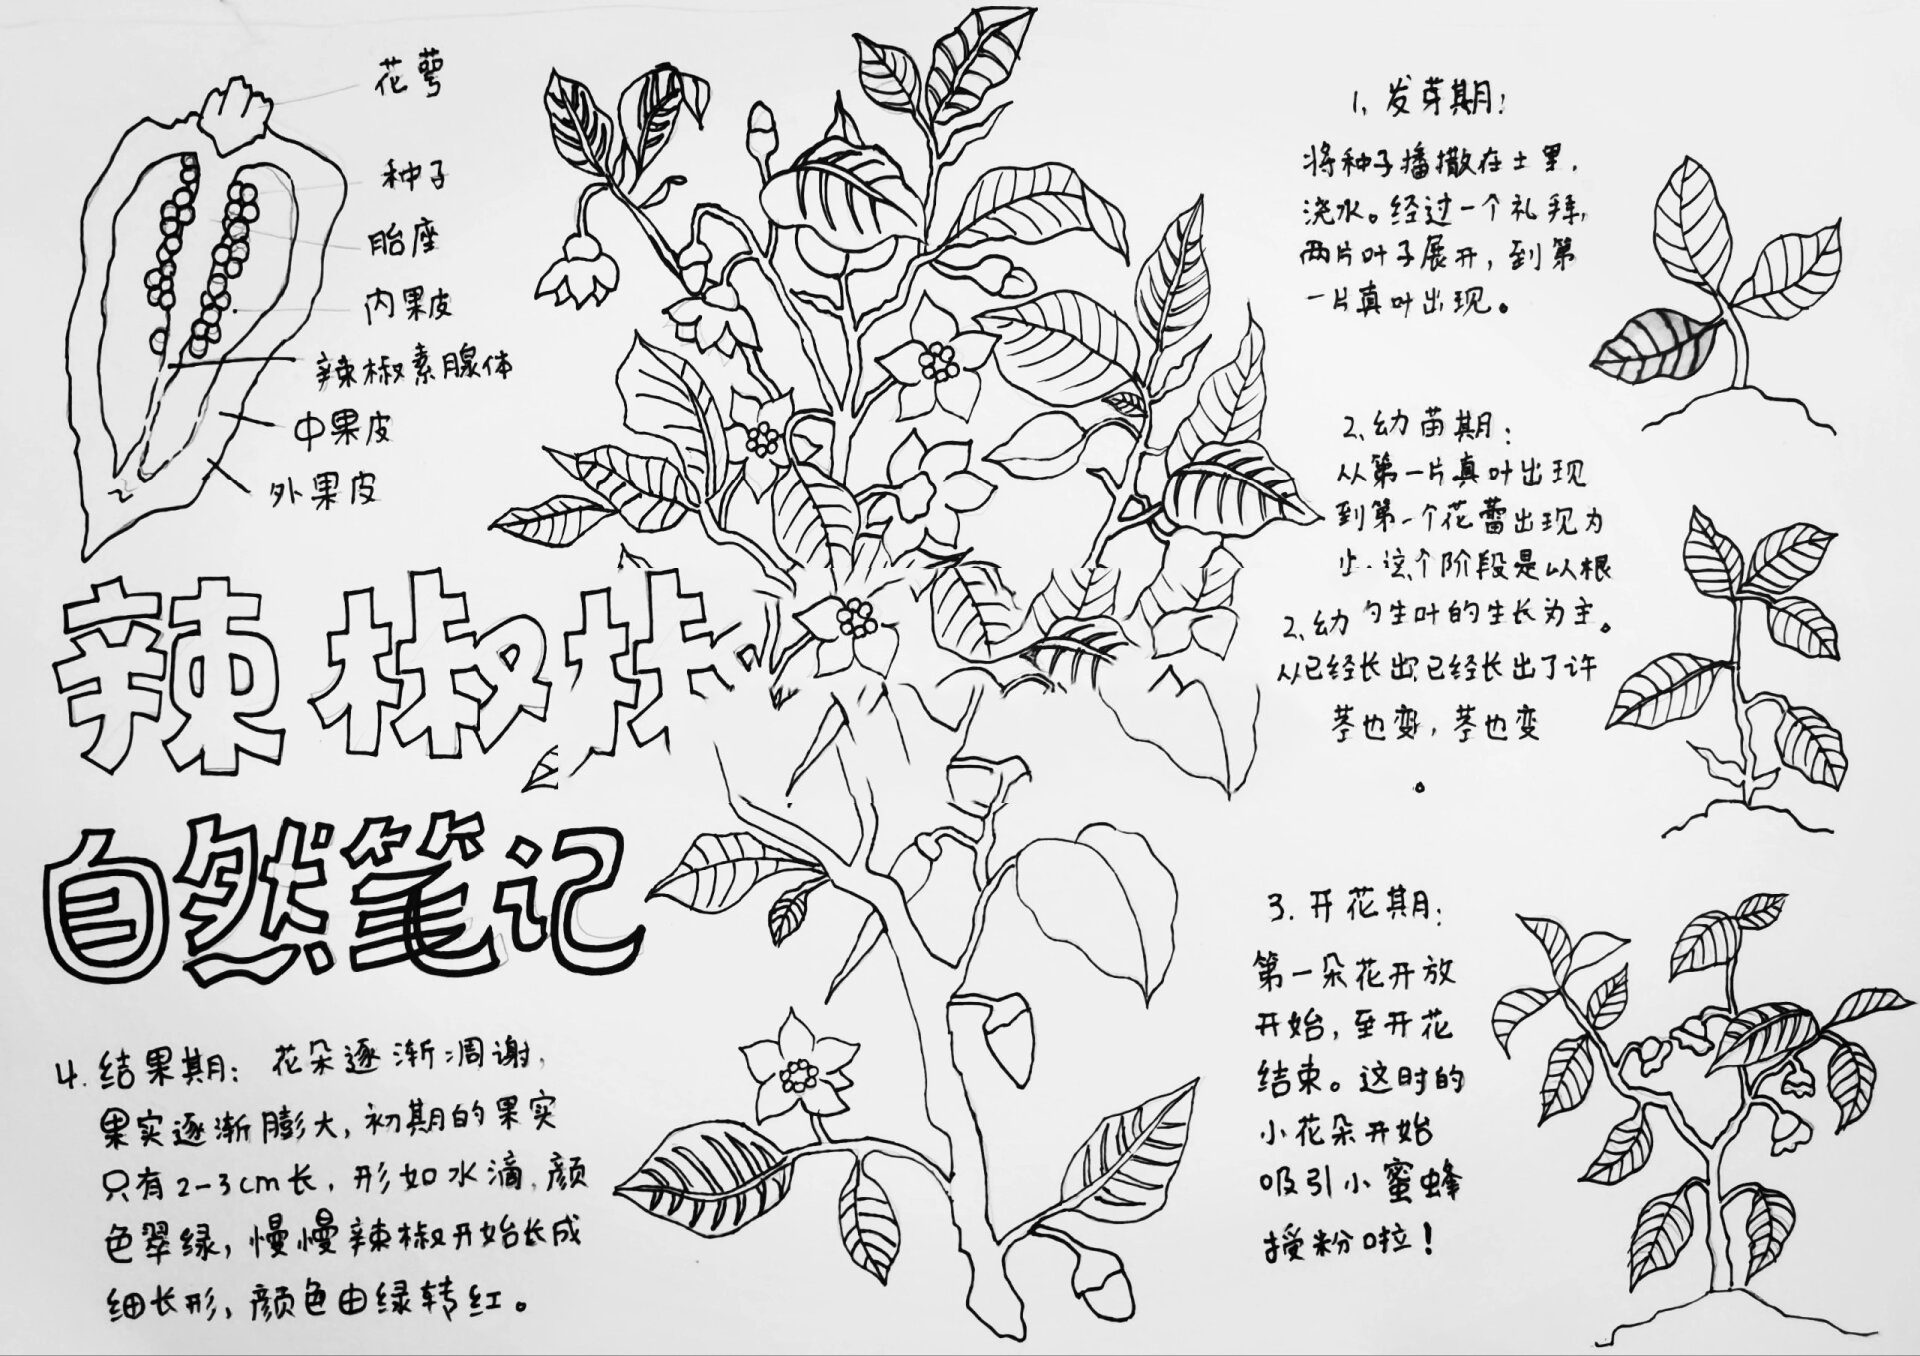 花萼
种子
胎座
内果皮
辣椒素腺体
中果皮
外果皮
辣椒
自然笔记
1、发芽期：
将种子播撒在土里，
浇水。经过一个礼拜，
两片叶子展开，到第
一片真叶出现。
2、幼苗期：
从第一片真叶出现
到第一个花蕾出现为
止.这个阶段是以根
2、幼 生叶的生长为主。
从已经长出已经长出了许
茎也变，茎也变
。
3.开花期：
第一朵花开放
开始，至开花
结束。这时的
小花朵开始
吸引小蜜蜂
授粉啦！
4.结果期：花朵逐渐凋谢，
果实逐渐膨大，初期的果实
只有2-3cm长，形如水滴，颜
色翠绿，慢慢辣椒开始长成
细长形，颜色由绿转红。